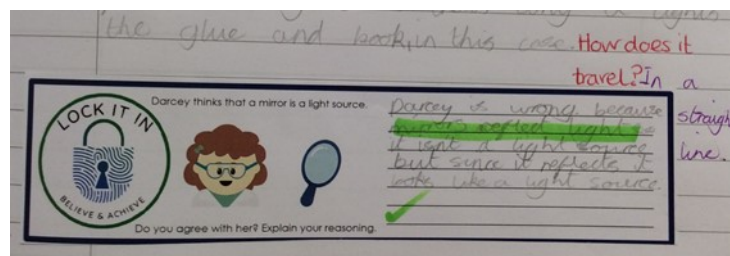 the glue and book, in this case. How does it
travel? In a
straigh
line.
LOCK IT IN
BELIEVE & ACHIEVE
Darcey thinks that a mirror is a light source.
Do you agree with her? Explain your reasoning.
Darcey is wrong because
mirrors reflect light
it isnt a light source
but since it reflects it
looks like a light source.